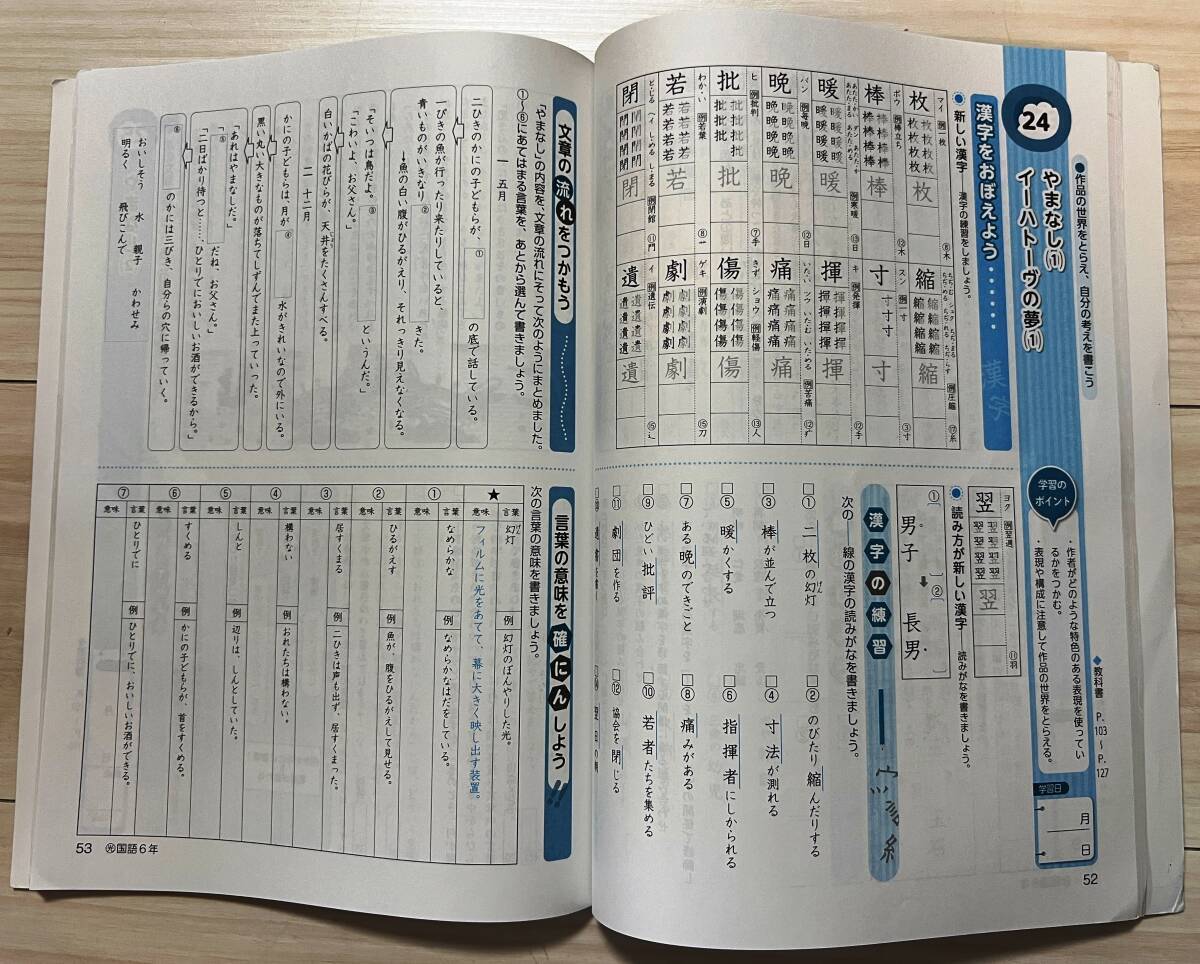 24
やまなし(1)
イーハトーヴの夢(1)
●作品の世界をとらえ、自分の考えを書こう
◆教科書 P.103〜P.127
学習のポイント
・作者がどのような特色のある表現を使っているかをつかむ。
・表現や構成に注意して作品の世界をとらえる。
学習日
月
日
漢字をおぼえよう
漢字
●新しい漢字 漢字の練習をしましょう。
枚 マイ 例一枚 ⑧木
棒 ボウ 例棒立ち ⑫木
暖 例寒暖 ⑬日
晩 バン 例毎晩 ⑫日
批 ヒ 例批判 ⑦手
若 わか・い 例若葉 ⑧艹
閉 例閉館 ⑪門
縮 例圧縮 ⑰糸
寸 スン ③寸
揮 キ 例発揮 ⑫手
痛 ツウ いた・い いた・む いた・める 例苦痛 ⑫疒
傷 ショウ きず 例軽傷 ⑬人
劇 ゲキ 例演劇 ⑮刀
遺 イ 例遺伝 ⑮辶
翌 ヨク 例翌週 ⑪羽
●読み方が新しい漢字 読みがなを書きましょう。
① 男子 → ② 長男
漢字の練習
次の——線の漢字の読みがなを書きましょう。
□① 二枚の幻灯
□② のびたり縮んだりする
□③ 棒が並んで立つ
□④ 寸法が測れる
□⑤ 暖かくする
□⑥ 指揮者にしかられる
□⑦ ある晩のできごと
□⑧ 痛みがある
□⑨ ひどい批評
□⑩ 若者たちを集める
□⑪ 劇団を作る
□⑫ 協会を閉じる
52
文章の流れをつかもう
「やまなし」の内容を、文章の流れにそって次のようにまとめました。
①〜⑥にあてはまる言葉を、あとから選んで書きましょう。
一 五月
二ひきのかにの子どもらが、 ① の底で話している。
一ぴきの魚が行ったり来たりしていると、
青いものがいきなり ② きた。
→魚の白い腹がひるがえり、それっきり見えなくなる。
「そいつは鳥だよ。 ③ というんだ。」
「こわいよ、お父さん。」
白いかばの花びらが、天井をたくさんすべる。
二 十二月
かにの子どもらは、月が ④ 水がきれいなので外にいる。
黒い丸い大きなものが落ちてしずんでまた上っていった。
「あれはやまなしだ。」
「 ⑤ だね、お父さん。」
「二日ばかり待つと……、ひとりでにおいしいお酒ができるから。」
⑥ のかには三びき、自分らの穴に帰っていく。
おいしそう 水 親子 かわせみ
明るく 飛びこんで
言葉の意味を確にんしよう
次の言葉の意味を書きましょう。
★ 言葉 幻灯 例 幻灯のぼんやりした光。
意味 フィルムに光をあてて、幕に大きく映し出す装置。
① 言葉 なめらかな 例 なめらかなはだをしている。
意味
② 言葉 ひるがえす 例 魚が、腹をひるがえして見せる。
意味
③ 言葉 居すくまる 例 二ひきは声も出ず、居すくまった。
意味
④ 言葉 構わない 例 おれたちは構わない。
意味
⑤ 言葉 しんと 例 辺りは、しんとしていた。
意味
⑥ 言葉 すくめる 例 かにの子どもらが、首をすくめる。
意味
⑦ 言葉 ひとりでに 例 ひとりでに、おいしいお酒ができる。
意味
53 光国語6年